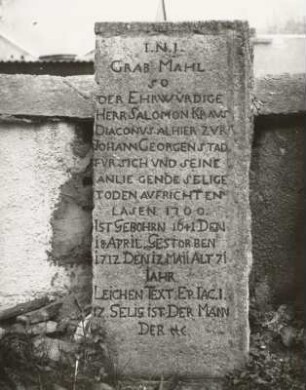 I.N.I.
GRAB MAHL
SO
DER EHRWÜRDIGE
HERR SALOMON KRAUS
DIACONUS ALHIER ZUR
IOHANN GEORGENSTAD
FÜR SICH UND SEINE
ANLIEGENDE SELIGE
TODEN AUFRICHTEN
LASEN 1700.
IST GEBOHRN 1641 DEN
18 APRIL GESTORBEN
1712 DEN 12 MAII ALT 71
IAHR
LEICHEN TEXT EP. IAC. I.
12 SELIG IST DER MANN
DER ETC